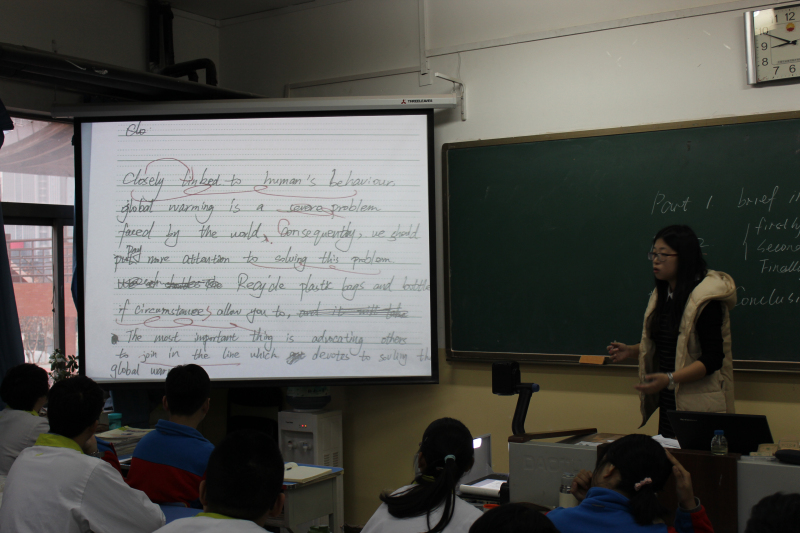 Closely linked to human's behaviour,
global warming is a severe problem
faced by the world. Consequently, we should
pay more attention to solving this problem
Recycle plastic bags and bottle
if circumstances allow you to, and it will take
The most important thing is advocating others
to join in the line which devotes to solving the
global war
Part 1 brief i
firstly
2
Second
Finally
Conclus
12
1
2
3
4
5
6
7
8
9
10